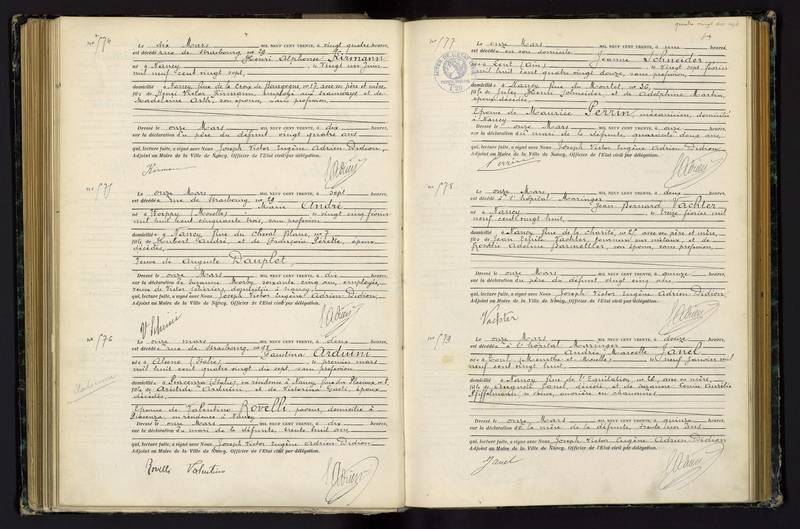 N° 574
Le dix Mars MIL NEUF CENT TRENTE, à vingt quatre heures,
est décédé rue de Strasbourg n° 29
Henri Alphonse Kirmann
né à Nancy, le vingt un Juin
mil neuf cent vingt sept,
domicilié à Nancy, rue de la Croix de Bourgogne, n° 17, avec ses père et mère,
fils de Henri Victor Kirmann, employé aux tramways et de
Madeleine Arth, son épouse, sans profession,
Dressé le onze Mars MIL NEUF CENT TRENTE, à dix heures,
sur la déclaration du père du défunt vingt quatre ans
qui, lecture faite, a signé avec Nous Joseph Victor Eugène Adrien Didion,
Adjoint au Maire de la Ville de Nancy, Officier de l'Etat civil par délégation.
N° 575
Le onze Mars MIL NEUF CENT TRENTE, à sept heures,
est décédée rue de Strasbourg n° 29
Marie André
née à Norroy (Moselle), le vingt février
mil huit cent cinquante trois, sans profession
domiciliée à Nancy rue du Cheval Blanc, n° 7
fille de Hubert André, et de Françoise Pérette, époux
décédés,
Veuve de Auguste Dauplot
Dressé le onze Mars MIL NEUF CENT TRENTE, à dix heures,
sur la déclaration de Suzanne soixante cinq ans, employée,
Veuve de Victor domiciliée à Nancy
qui, lecture faite, a signé avec Nous Joseph Victor Eugène Adrien Didion,
Adjoint au Maire de la Ville de Nancy, Officier de l'Etat civil par délégation.
N° 576
Le onze mars MIL NEUF CENT TRENTE, à deux heures,
est décédée rue de Strasbourg, n° 92
Faustina Arduini
née à Alseno (Italie) le premier mars
mil huit cent quatre vingt dix sept, sans profession
domiciliée à Piacenza (Italie), en résidence à Nancy,
fille de Aristide Arduini, et de Victorina époux
décédés,
Epouse de Valentino Rovelli, paveur, domicilié à
Piacenza, en résidence à Nancy
Dressé le onze Mars MIL NEUF CENT TRENTE, à dix heures,
sur la déclaration du mari de la défunte, trente huit ans
qui, lecture faite, a signé avec Nous Joseph Victor Eugène Adrien Didion
Adjoint au Maire de la Ville de Nancy, Officier de l'Etat civil par délégation.
Rovello Valentino
quatre vingt dix sept
N° 577
Le onze Mars MIL NEUF CENT TRENTE, à une heure,
est décédée en son domicile
Jeanne Schneider
née à Lent (Ain) le vingt sept février
mil huit cent quatre vingt douze, sans profession,
domiciliée à Nancy rue du Montet, n° 36,
fille de Jules Henri Schneider, et de Adolphine Martin,
époux décédés,
Epouse de Maurice Perrin, mécanicien, domicilié
à Nancy
Dressé le onze Mars MIL NEUF CENT TRENTE, à onze heures,
sur la déclaration du mari de la défunte, quarante deux ans,
qui, lecture faite, a signé avec Nous Joseph Victor Eugène Adrien Didion
Adjoint au Maire de la Ville de Nancy, Officier de l'Etat civil par délégation.
Perrin
N° 578
Le onze Mars, MIL NEUF CENT TRENTE, à deux heures,
est décédé à l'hôpital Maringer
Jean Bernard Vachter
né à Nancy le treize février mil
neuf cent vingt huit,
domicilié à Nancy, rue de la Charité, avec ses père et mère,
fils de Jean Emile Vachter, tourneur sur métaux, et de
Rosalie Adeline Barmettler, son épouse, sans profession,
Dressé le onze Mars MIL NEUF CENT TRENTE, à quinze heures,
sur la déclaration du père du défunt vingt cinq ans
qui, lecture faite, a signé avec Nous Joseph Victor Eugène Adrien Didion,
Adjoint au Maire de la Ville de Nancy, Officier de l'Etat civil par délégation.
Vachter
N° 579
Le onze Mars MIL NEUF CENT TRENTE, à douze heures,
est décédée à l'hôpital Maringer
Andrée Marcelle Janel
née à Toul (Meurthe et Moselle) le neuf Janvier mil
neuf cent vingt huit
domiciliée à Nancy rue de l'Equitation, n° 26, avec sa mère,
fille de Auguste Janel, et de Suzanne Aurélie
sa veuve, ouvrière en chaussures
Dressé le onze Mars MIL NEUF CENT TRENTE, à quinze heures,
sur la déclaration de la mère de la défunte, trente ans
qui, lecture faite, a signé avec Nous Joseph Victor Eugène Adrien Didion
Adjoint au Maire de la Ville de Nancy, Officier de l'Etat civil par délégation.
Janel